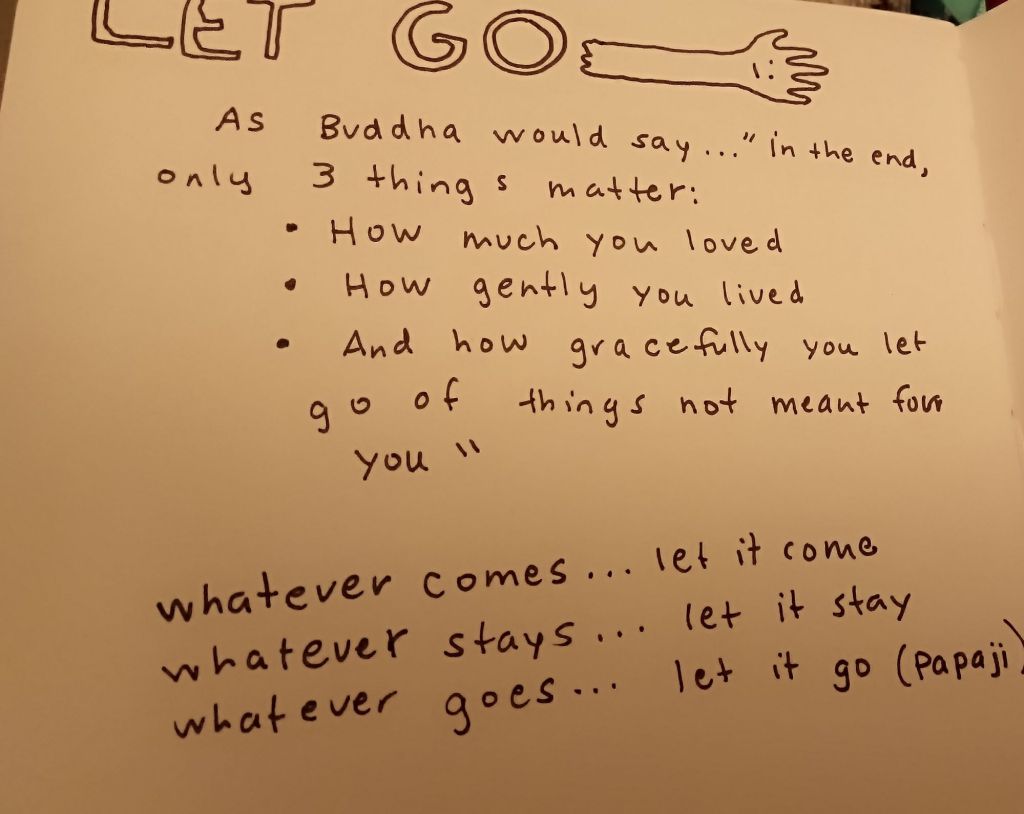 LET GO
As Buddha would say..." in the end,
only 3 things matter:
• How much you loved
• How gently you lived
• And how gracefully you let
go of things not meant for
you "
whatever comes... let it come
whatever stays... let it stay
whatever goes... let it go (papaji)